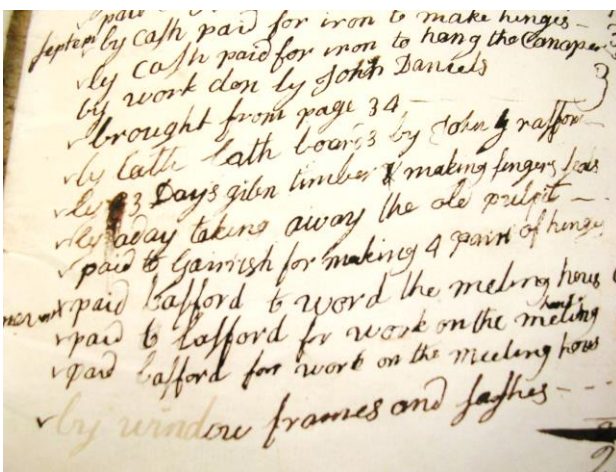 paid
Septem by Cash paid for iron to make hinges
by Cash paid for iron to hang the Canape
by work don by John Daniels
brought from page 34
by lath boards by John
by 3 Days making fingers
by aday taking away the old pulpit
paid to Garnish for making 4 pair of hinges
paid Lafford to word the meeting hous
paid to Lafford for work on the meeting
paid Lafford for work on the meeting hous
by window frames and sashes